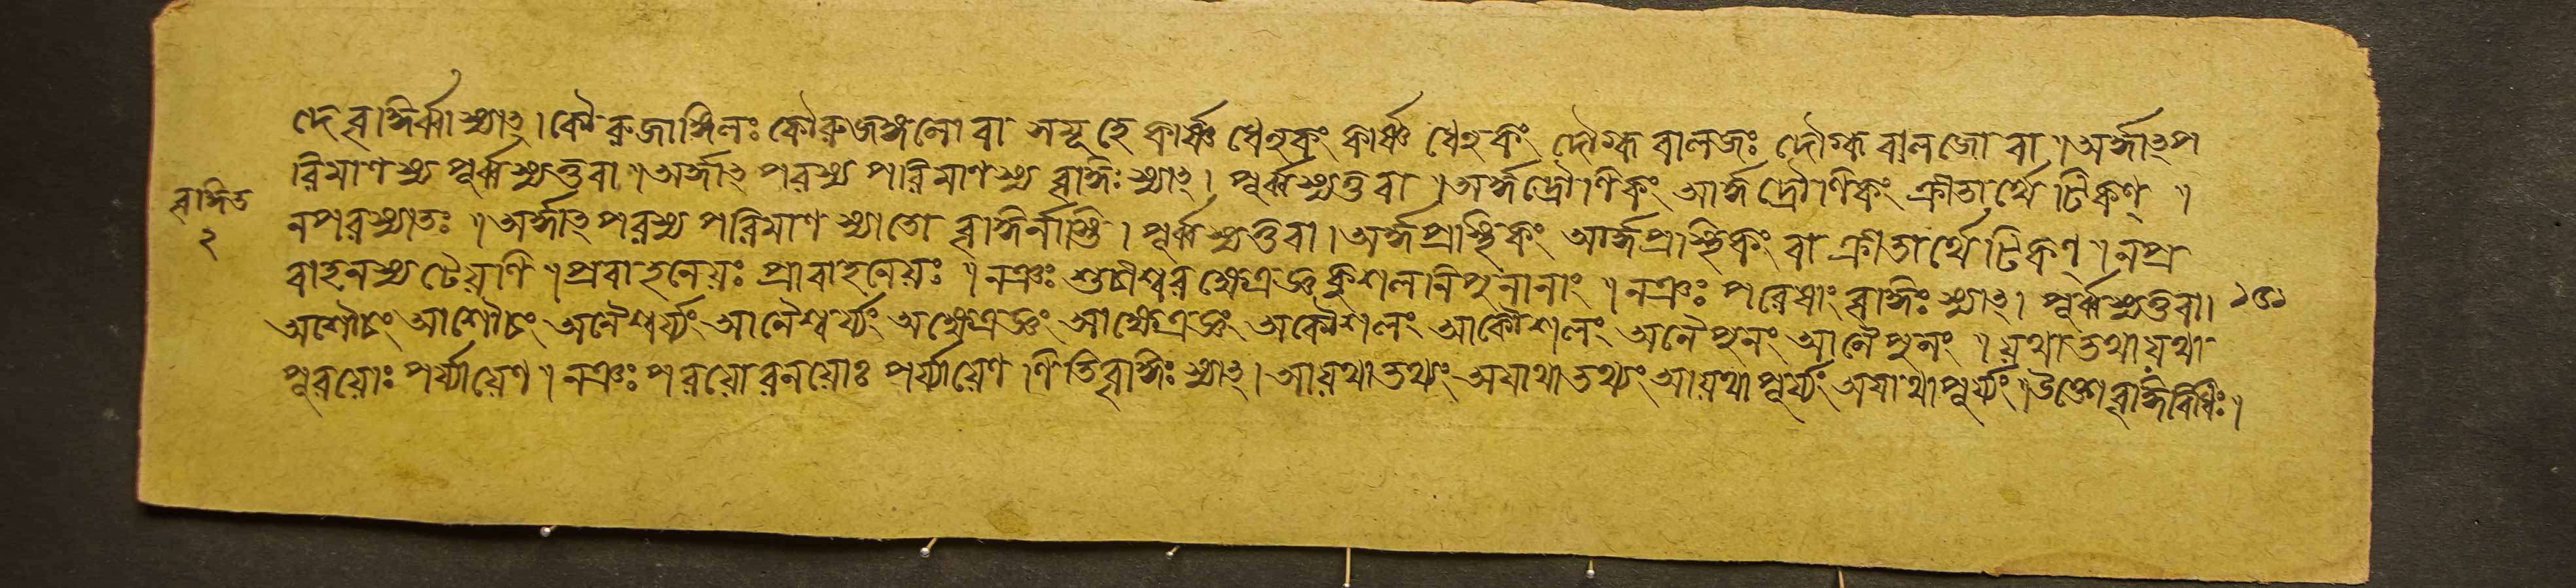 দে বৃদ্ধির্ব্বা স্যাৎ। কৌরুজাঙ্গিলঃ কৌরুজঙ্গলো বা সমূহে কার্ষ্ণ ধেনুকং কার্ষ্ণ ধেনুকং দৌগ্ধ বালজঃ দৌগ্ধ বালজো বা । অর্দ্ধাৎ প
রিমাণস্য পূর্ব্বস্য তু বা । অর্দ্ধাৎ পরস্য পরিমাণস্য বৃদ্ধিঃ স্যাৎ। পূর্ব্বস্য তু বা । অর্দ্ধদ্রৌণিকং আর্দ্ধদ্রৌণিকং ক্রীতার্থে টিকণ্ ।
বৃদ্ধিত
২
ন পরস্যাতঃ । অর্দ্ধাৎ পরস্য পরিমাণ স্যাতো বৃদ্ধির্নাস্তি । পূর্ব্বস্য তু বা । অর্দ্ধপ্রস্থিকং আর্দ্ধপ্রস্থিকং বা ক্রীতার্থে টিকণ্ । ন প্র
বাহনস্য ঢেয়ণি । প্রবাহনেয়ঃ প্রাবাহনেয়ঃ । নঞঃ শুচীশ্বর ক্ষেত্রজ্ঞ কুশল নিপুনানাং । নঞঃ পরেষাং বৃদ্ধিঃ স্যাৎ। পূর্ব্বস্য তু বা।
অশৌচং আশৌচং অনৈশ্বর্য্যং আনৈশ্বর্য্যং অক্ষৈত্রজ্ঞং আক্ষৈত্রজ্ঞং অকৌশলং আকৌশলং অনৈপুনং আনৈপুনং । যথাতথাযথা
পুরয়োঃ পর্য্যায়েণ । নঞঃ পরয়োরনয়োঃ পর্য্যায়েণ ণিতি বৃদ্ধিঃ স্যাৎ। আযথাতথ্যং অযাথাতথ্যং আযথাপূর্য্যং অযাথাপূর্য্যং । উক্তো বৃদ্ধির্বিধিঃ।